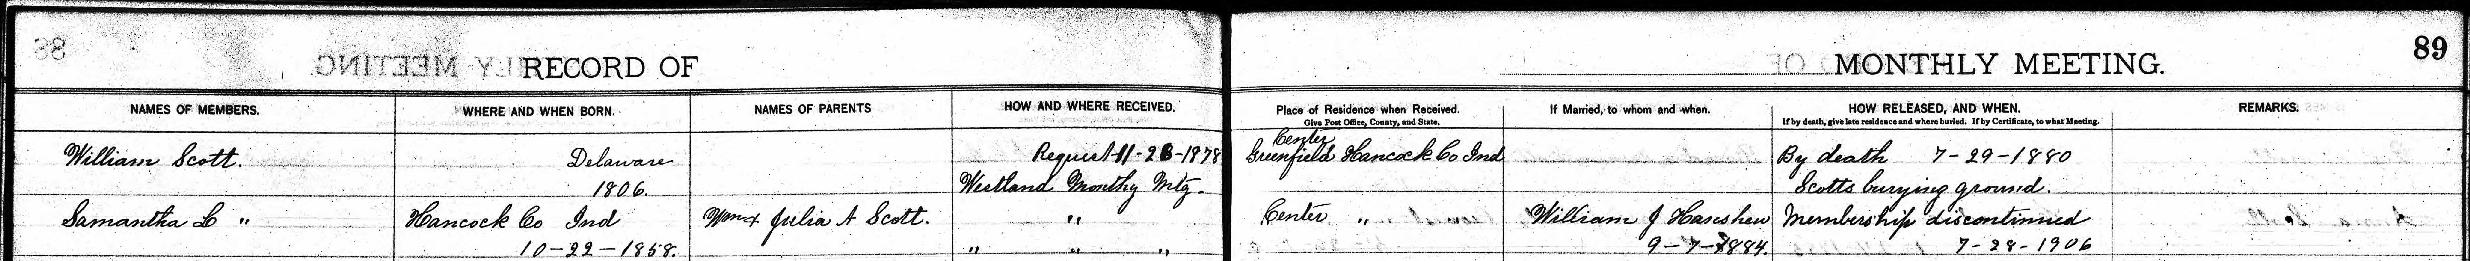 89
RECORD OF MONTHLY MEETING.
NAMES OF MEMBERS. WHERE AND WHEN BORN. NAMES OF PARENTS HOW AND WHERE RECEIVED. Place of Residence when Received. If Married, to whom and when. HOW RELEASED, AND WHEN. REMARKS.
Give Post Office, County, and State. If by death, give late residence and where buried. If by Certificate, to what Meeting.
Center
William Scott. Delaware Request 11-23-1878 Greenfield Hancock Co Ind By death 7-29-1880
1806. Westland Monthy Mtg. Scotts burying ground.
Samantha L " Hancock Co Ind Wm & Julia A Scott. " Center " William J Hanshew Membership discontinued
10-22-1858. " " " 9-7-1884. 7-28-1906